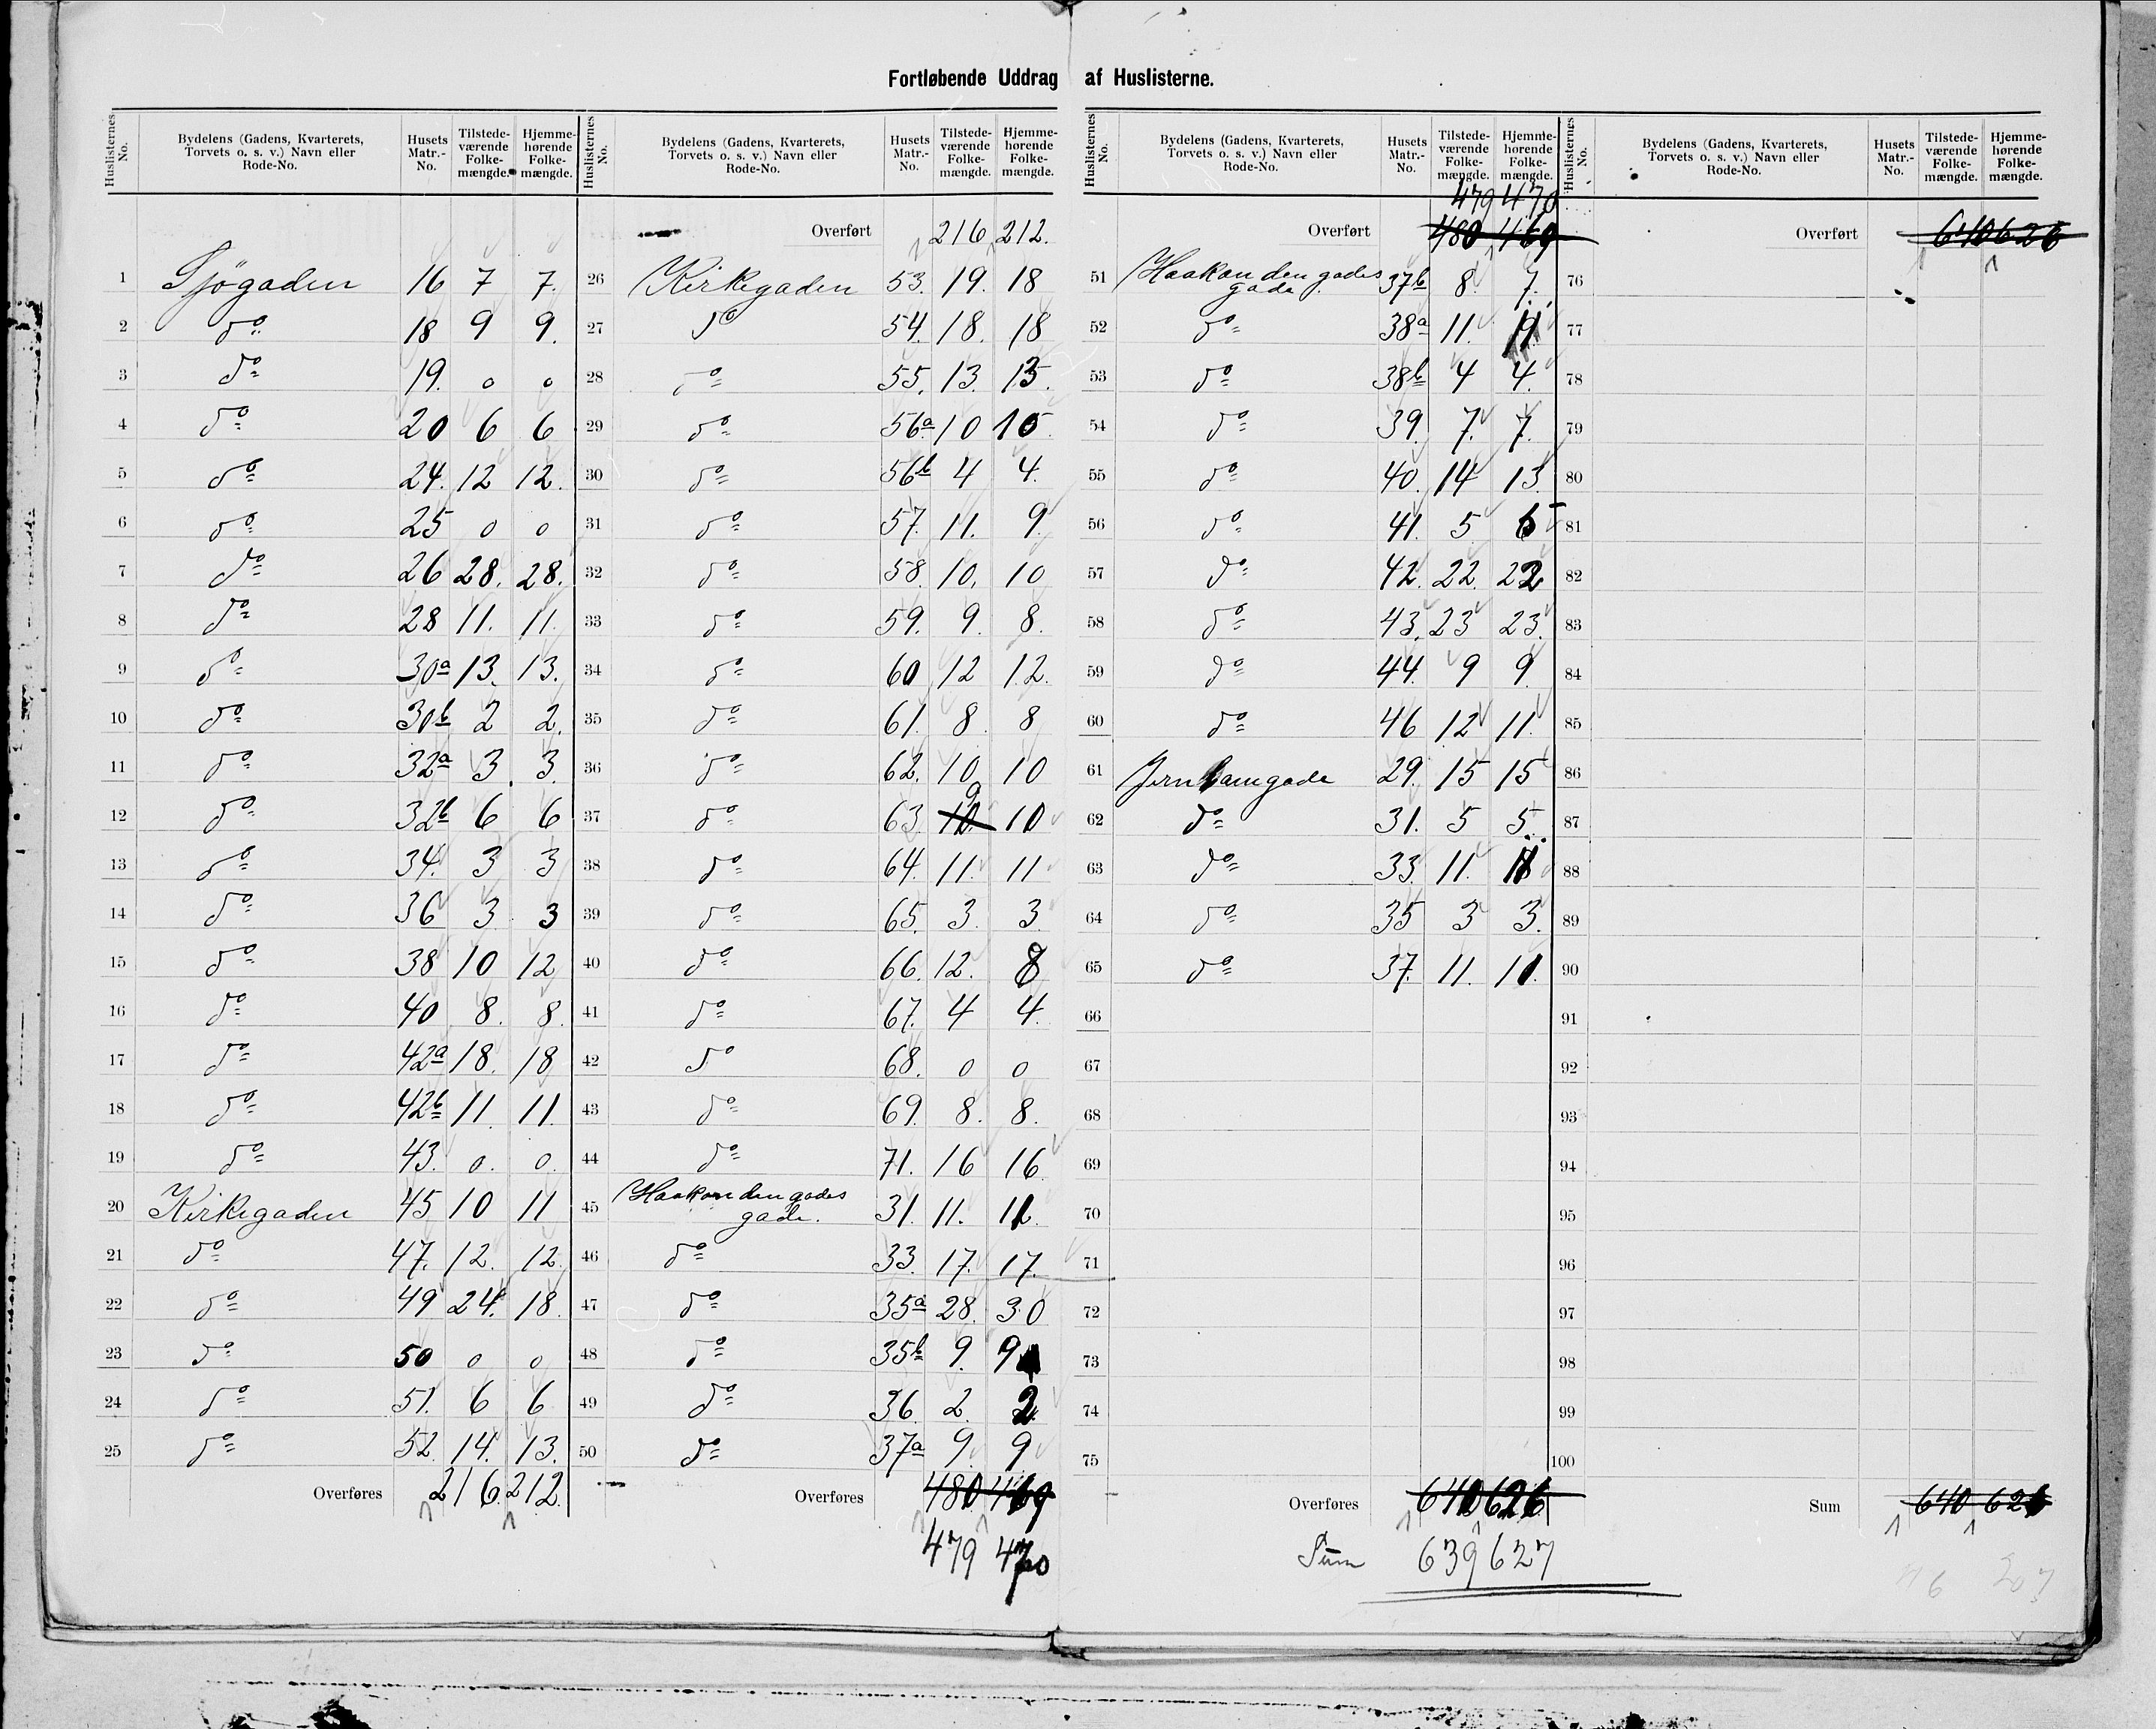 Fortløbende Uddrag af Huslisterne.
Huslisternes No. Bydelens (Gadens, Kvarterets, Torvets o. s. v.) Navn eller Rode-No. Husets Matr.-No. Tilstedeværende Folkemængde. Hjemmehørende Folkemængde.
1 Sjøgaden 16 7 7.
2 do 18 9 9.
3 do 19. 0 0
4 do 20 6 6
5 do 24. 12 12.
6 do 25 0 0
7 do 26 28. 28.
8 do 28 11. 11.
9 do 30a 13. 13.
10 do 30b 2 2.
11 do 32a 3. 3.
12 do 32b 6 6
13 do 34. 3 3
14 do 36 3. 3
15 do 38 10 12
16 do 40 8. 8.
17 do 42a 18. 18
18 do 42b 11. 11.
19 do 43. 0. 0.
20 Kirkegaden 45 10 11
21 do 47. 12. 12.
22 do 49 24. 18.
23 do 50 0 0
24 do 51. 6 6
25 do 52. 14. 13.
Overføres 216. 212.
Huslisternes No. Bydelens (Gadens, Kvarterets, Torvets o. s. v.) Navn eller Rode-No. Husets Matr.-No. Tilstedeværende Folkemængde. Hjemmehørende Folkemængde.
Overført 216 212.
26 Kirkegaden 53. 19. 18
27 do 54. 18. 18
28 do 55. 13. 13.
29 do 56a 10 10
30 do 56b 4 4.
31 do 57. 11. 9.
32 do 58. 10. 10
33 do 59. 9. 8.
34 do 60 12 12.
35 do 61. 8. 8
36 do 62. 10 10
37 do 63. 10. 9 10
38 do 64. 11. 11
39 do 65. 3. 3
40 do 66. 12. 8
41 do 67. 4 4.
42 do 68. 0 0
43 do 69. 8. 8.
44 do 71. 16 16
45 Haakon den godes
gade. 31. 11. 11.
46 do 33. 17. 17.
47 do 35a 28. 30
48 do 35b 9. 9
49 do 36. 2. 2
50 do 37a 9. 9
Overføres 480 469
479 470
Huslisternes No. Bydelens (Gadens, Kvarterets, Torvets o. s. v.) Navn eller Rode-No. Husets Matr.-No. Tilstedeværende Folkemængde. Hjemmehørende Folkemængde.
479 470
Overført 480 469
51 Haakon den godes
gade. 37b 8. 7.
52 do 38a 11. 11
53 do 38b 4 4.
54 do 39. 7. 7.
55 do 40. 14 13.
56 do 41. 5
57 do 42. 22. 22
58 do 43. 23 23.
59 do 44. 9 9
60 do 46 12 11.
61 Jernbanegade 29. 15 15
62 do 31. 5 5.
63 do 33. 11. 11
64 do 35 3 3.
65 do 37. 11. 11.
66
67
68
69
70
71
72
73
74
75
Overføres 640 626
Sum 639 627
Huslisternes No. Bydelens (Gadens, Kvarterets, Torvets o. s. v.) Navn eller Rode-No. Husets Matr.-No. Tilstedeværende Folkemængde. Hjemmehørende Folkemængde.
Overført 640 626
76
77
78
79
80
81
82
83
84
85
86
87
88
89
90
91
92
93
94
95
96
97
98
99
100
Sum 640 626